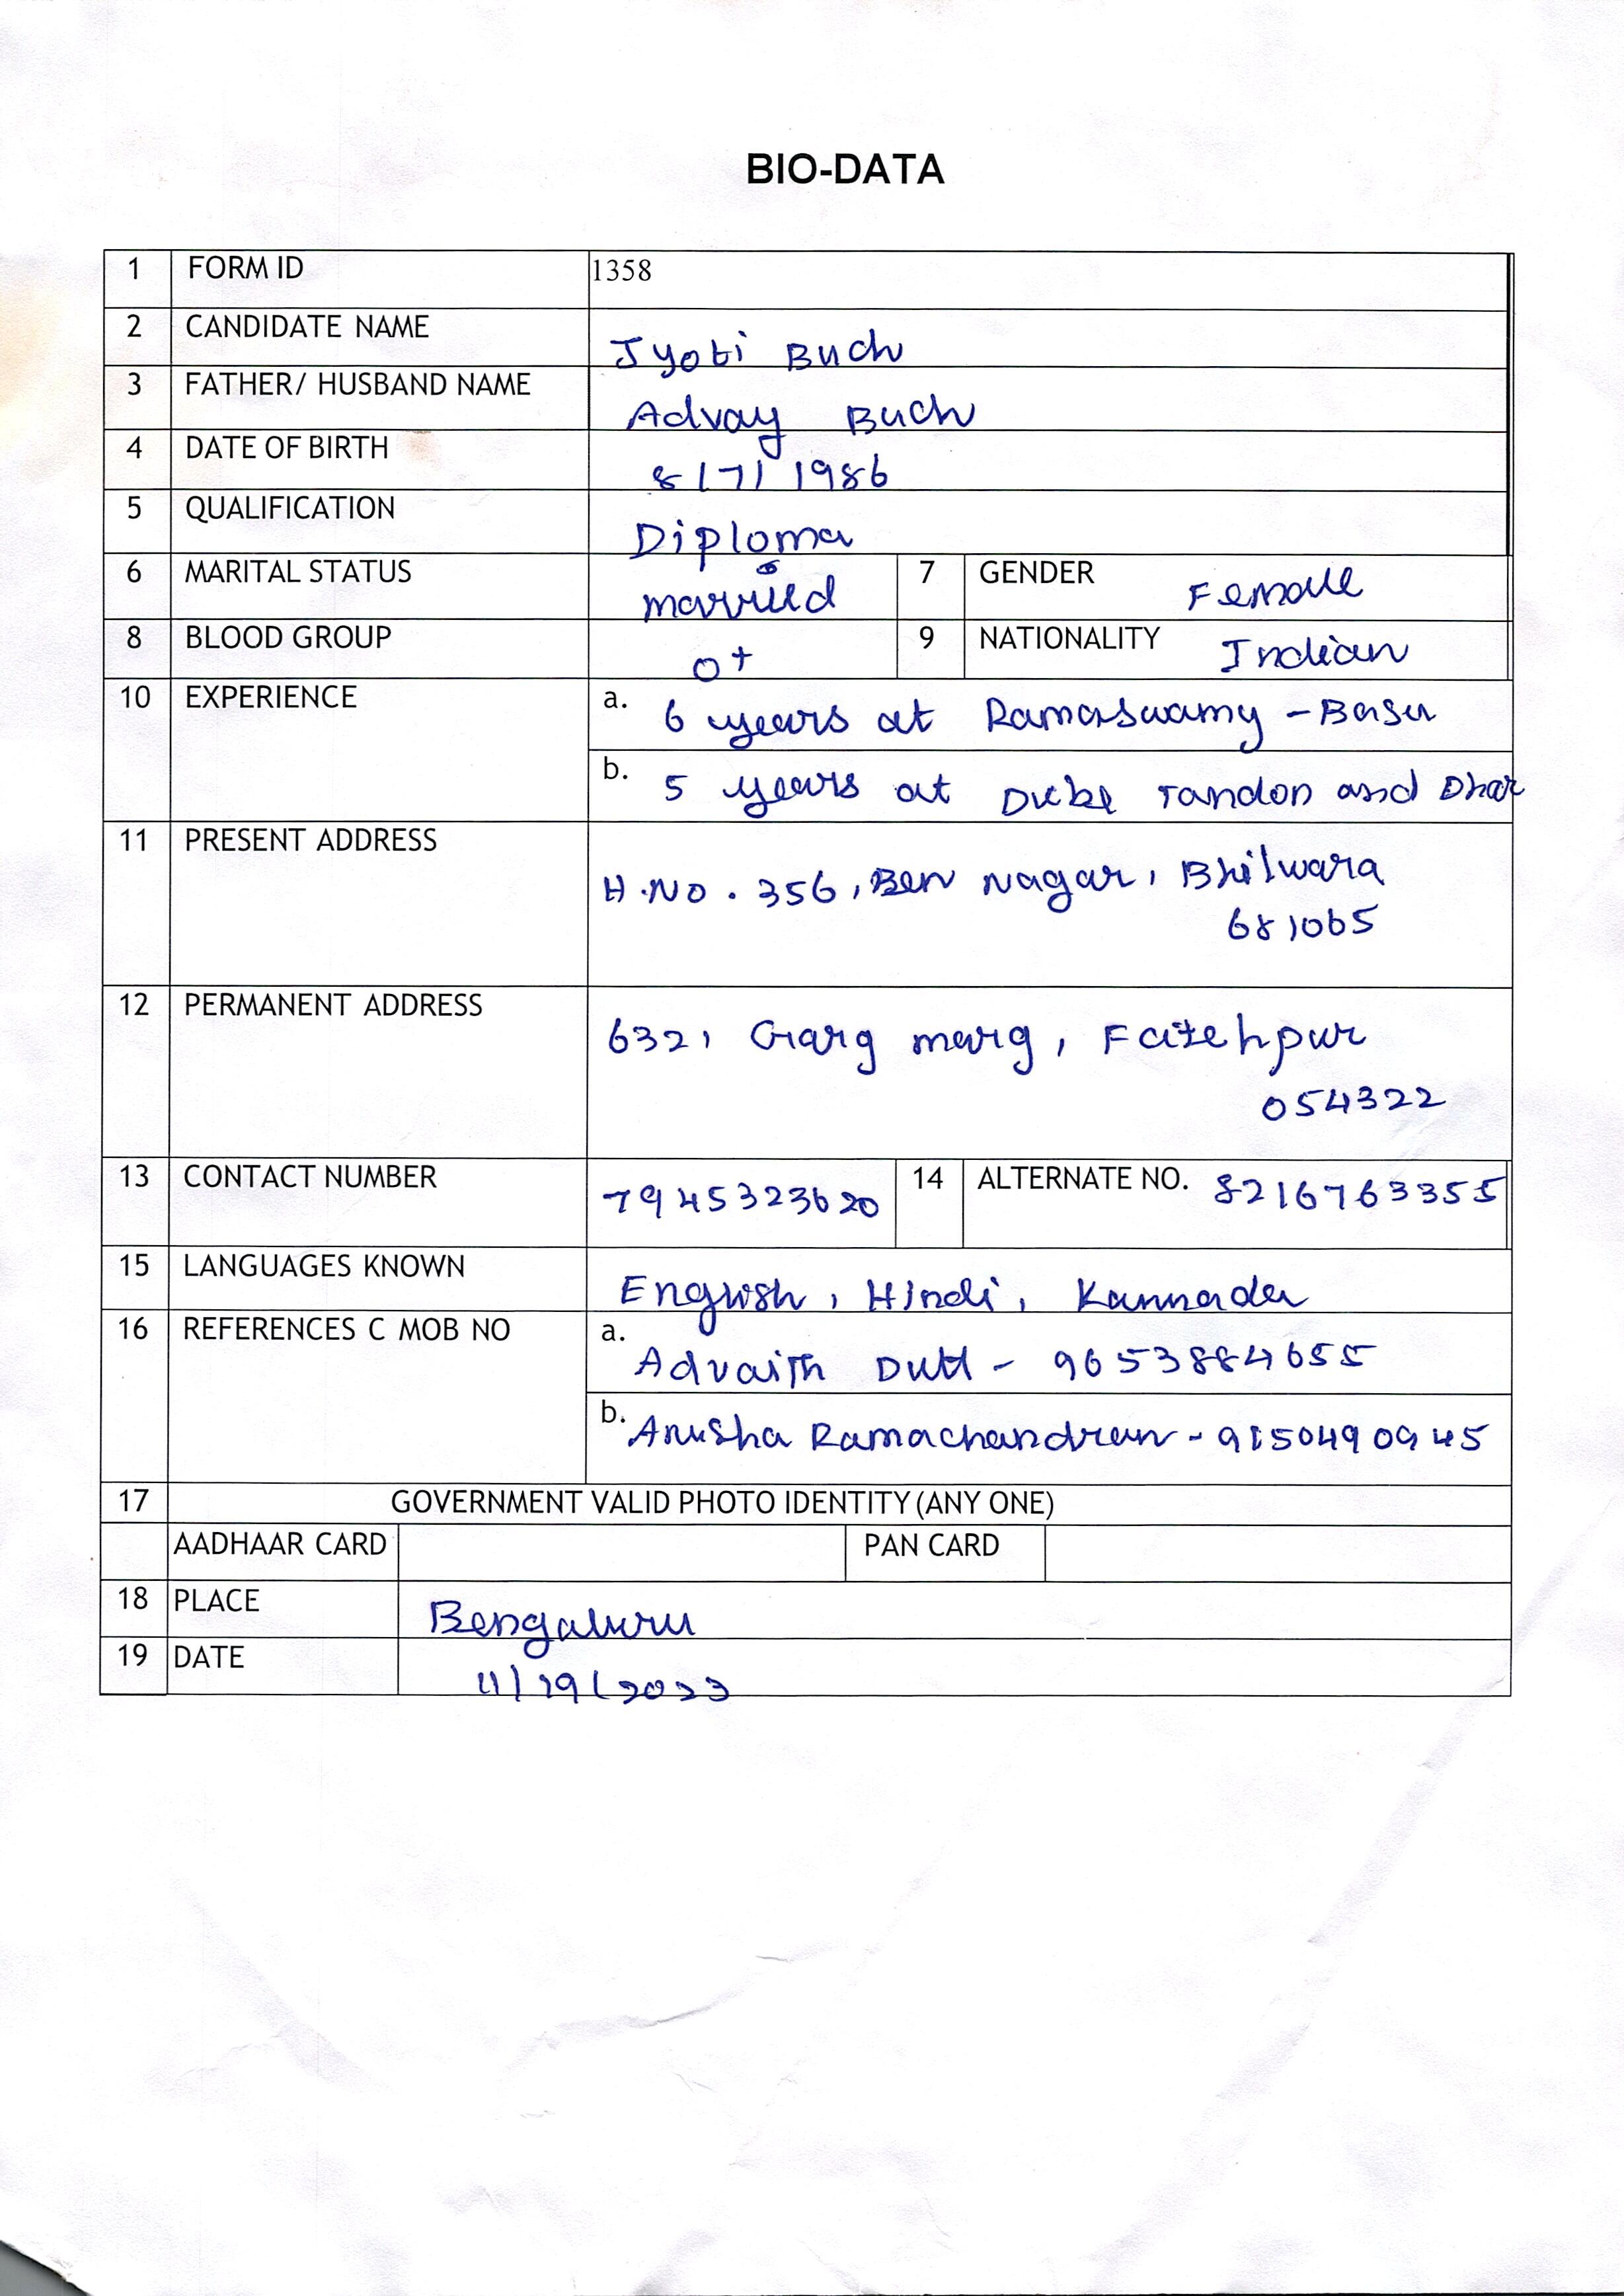 BIO-DATA
1 FORM ID 1358
2 CANDIDATE NAME Jyoti Buch
3 FATHER/ HUSBAND NAME Advay Buch
4 DATE OF BIRTH 8/7/1986
5 QUALIFICATION Diploma
6 MARITAL STATUS married 7 GENDER Female
8 BLOOD GROUP O+ 9 NATIONALITY Indian
10 EXPERIENCE a. 6 years at Ramaswamy - Basu
b. 5 years at Dube Tandon and Dhar
11 PRESENT ADDRESS
H.No. 356, Ben Nagar, Bhilwara
681065
12 PERMANENT ADDRESS
632, Garg marg, Fatehpur
054322
13 CONTACT NUMBER 7945323620 14 ALTERNATE NO. 8216763355
15 LANGUAGES KNOWN English, Hindi, Kannada
16 REFERENCES C MOB NO a. Advaith Dutt - 9653884655
b. Anusha Ramachandran - 9150490945
17 GOVERNMENT VALID PHOTO IDENTITY (ANY ONE)
AADHAAR CARD PAN CARD
18 PLACE Bengaluru
19 DATE 11/19/2023